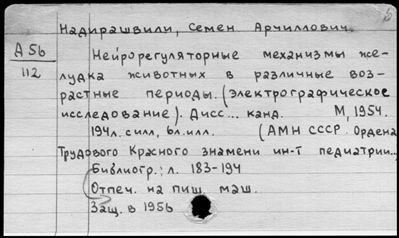 Надирашвили, Семен Арчиллович.
А 56
112
Нейрорегуляторные механизмы же-
лудка животных в различные воз-
растные периоды. (Электрографическое
исследование). Дисс... канд. М, 1954.
194л. с илл, 6л. илл. (АМН СССР. Ордена
Трудового Красного знамени ин-т педиатрии...
Библиогр.: л. 183-194
Отпеч. на пиш. маш.
Защ. в 1956